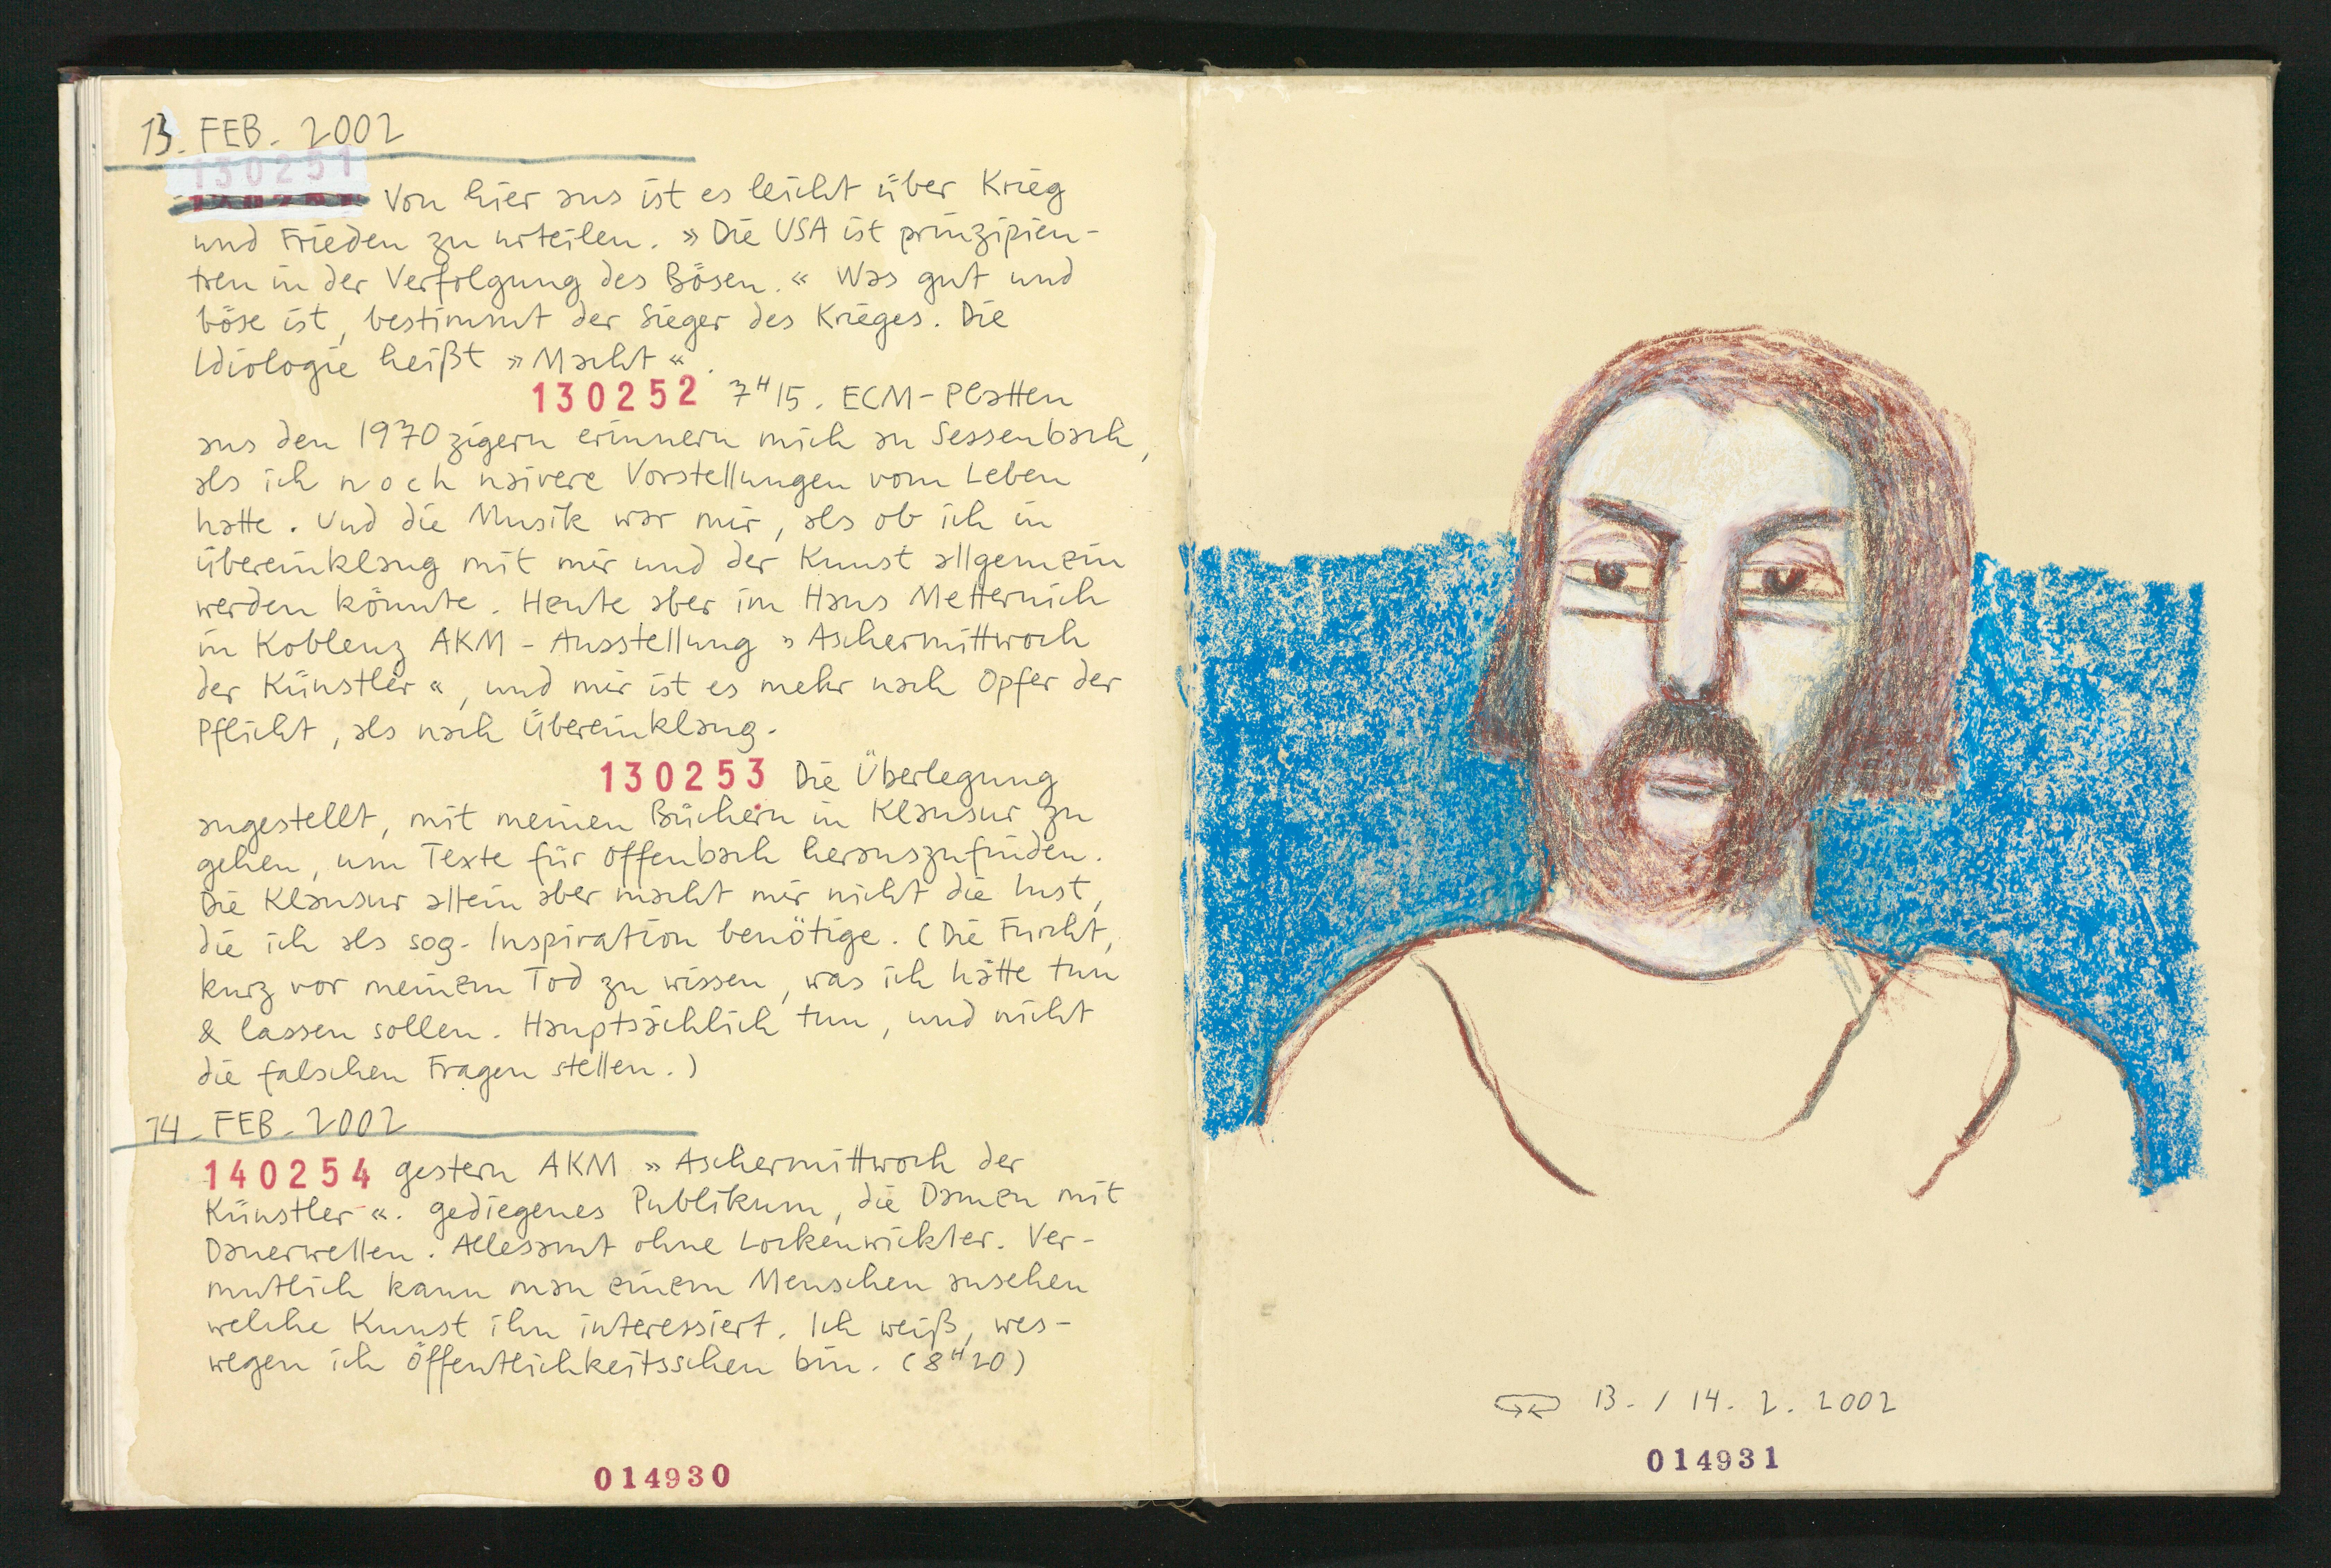 13. FEB. 2002
130251
Von hier aus ist es leicht über Krieg
und Frieden zu urteilen. » Die USA ist prinzipien-
treu in der Verfolgung des Bösen. « Was gut und
böse ist, bestimmt der Sieger des Krieges. Die
Idiologie heißt » Macht « .
130252 7H15. ECM-Platten
aus den 1970zigern erinnern mich an Sessenbach,
als ich noch naivere Vorstellungen vom Leben
hatte. Und die Musik war mir, als ob ich in
übereinklang mit mir und der Kunst allgemein
werden könnte. Heute aber im Haus Metternich
in Koblenz AKM-Ausstellung » Aschermittwoch
der Künstler «, und mir ist es mehr nach Opfer der
Pflicht, als nach Übereinklang.
130253 Die Überlegung
angestellt, mit meinen Büchern in Klausur zu
gehen, um Texte für Offenbach herauszufinden.
Die Klausur allein aber macht mir nicht die Lust,
die ich als sog. Inspiration benötige. (Die Furcht,
kurz vor meinem Tod zu wissen, was ich hätte tun
& lassen sollen. Hauptsächlich tun, und nicht
die falschen Fragen stellen.)
14. FEB. 2002
140254 gestern AKM » Aschermittwoch der
Künstler «. gediegenes Publikum, die Damen mit
Dauerwellen. Allesamt ohne Lockenwickler. Ver-
mutlich kann man einem Menschen ansehen
welche Kunst ihn interessiert. Ich weiß, wes-
wegen ich öffentlichkeitsscheu bin. (8H20)
014930
13. / 14. 2. 2002
014931